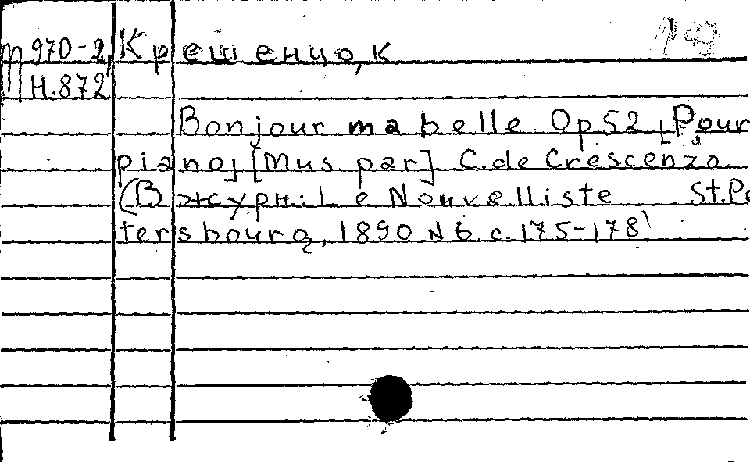 m 970-2 Крешенцо, К
H.872
Bonjour ma belle Op 52 [Pour
piano] [Mus par] C. de Crescenzo
(В журн: Le Nouvelliste St. Pe
tersbourg, 1890 N 6 c. 175-178)